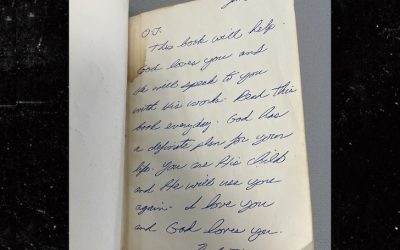 O.J.
This book will help.
God loves you and
he will speak to you
with His work. Read this
book everyday. God has
a definate plan for your
life. You are His child
and He will use you
again. I love you
and God loves you.